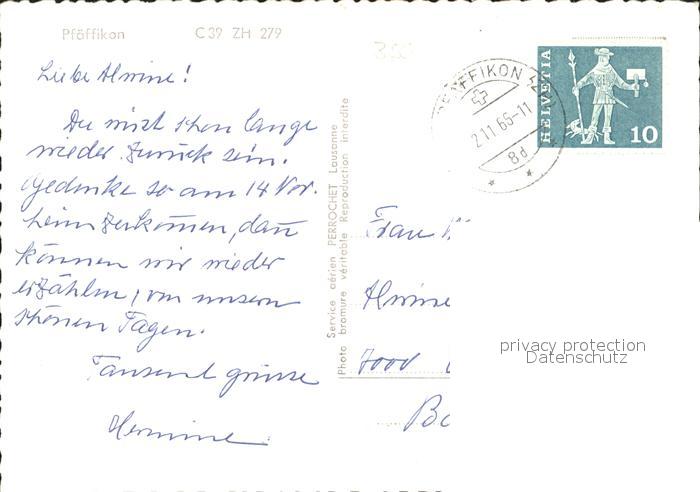 Pfäffikon C 39 ZH 279
Liebe Almine!
Du wirst schon lange
wieder zurück sein.
Gedenke so am 14 Nov.
heim zu kommen, dan
können wir wieder
erzählen, von unsern
schönen Tagen.
Tausend grüsse
Hermine.
Service aérien PERROCHET Lausanne
Photo bromure véritable Reproduction interdite
PFÄFFIKON
2.11.65-11
8d
HELVETIA
10
Frau
Almine
privacy protection
Datenschutz